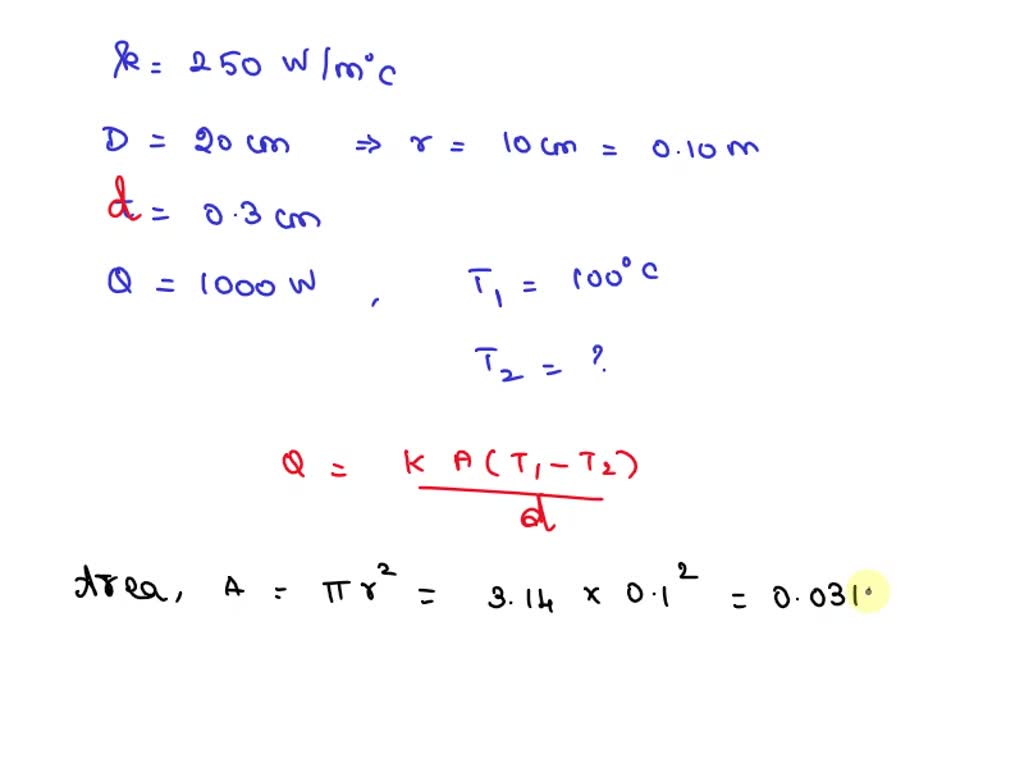 k = 250 W/m°c
D = 20 cm ⇒ r = 10 cm = 0.10 m
d = 0.3 cm
Q = 1000 W , T₁ = 100° c
T₂ = ?
Q = K A (T₁ - T₂) / d
Area, A = πr² = 3.14 × 0.1² = 0.031